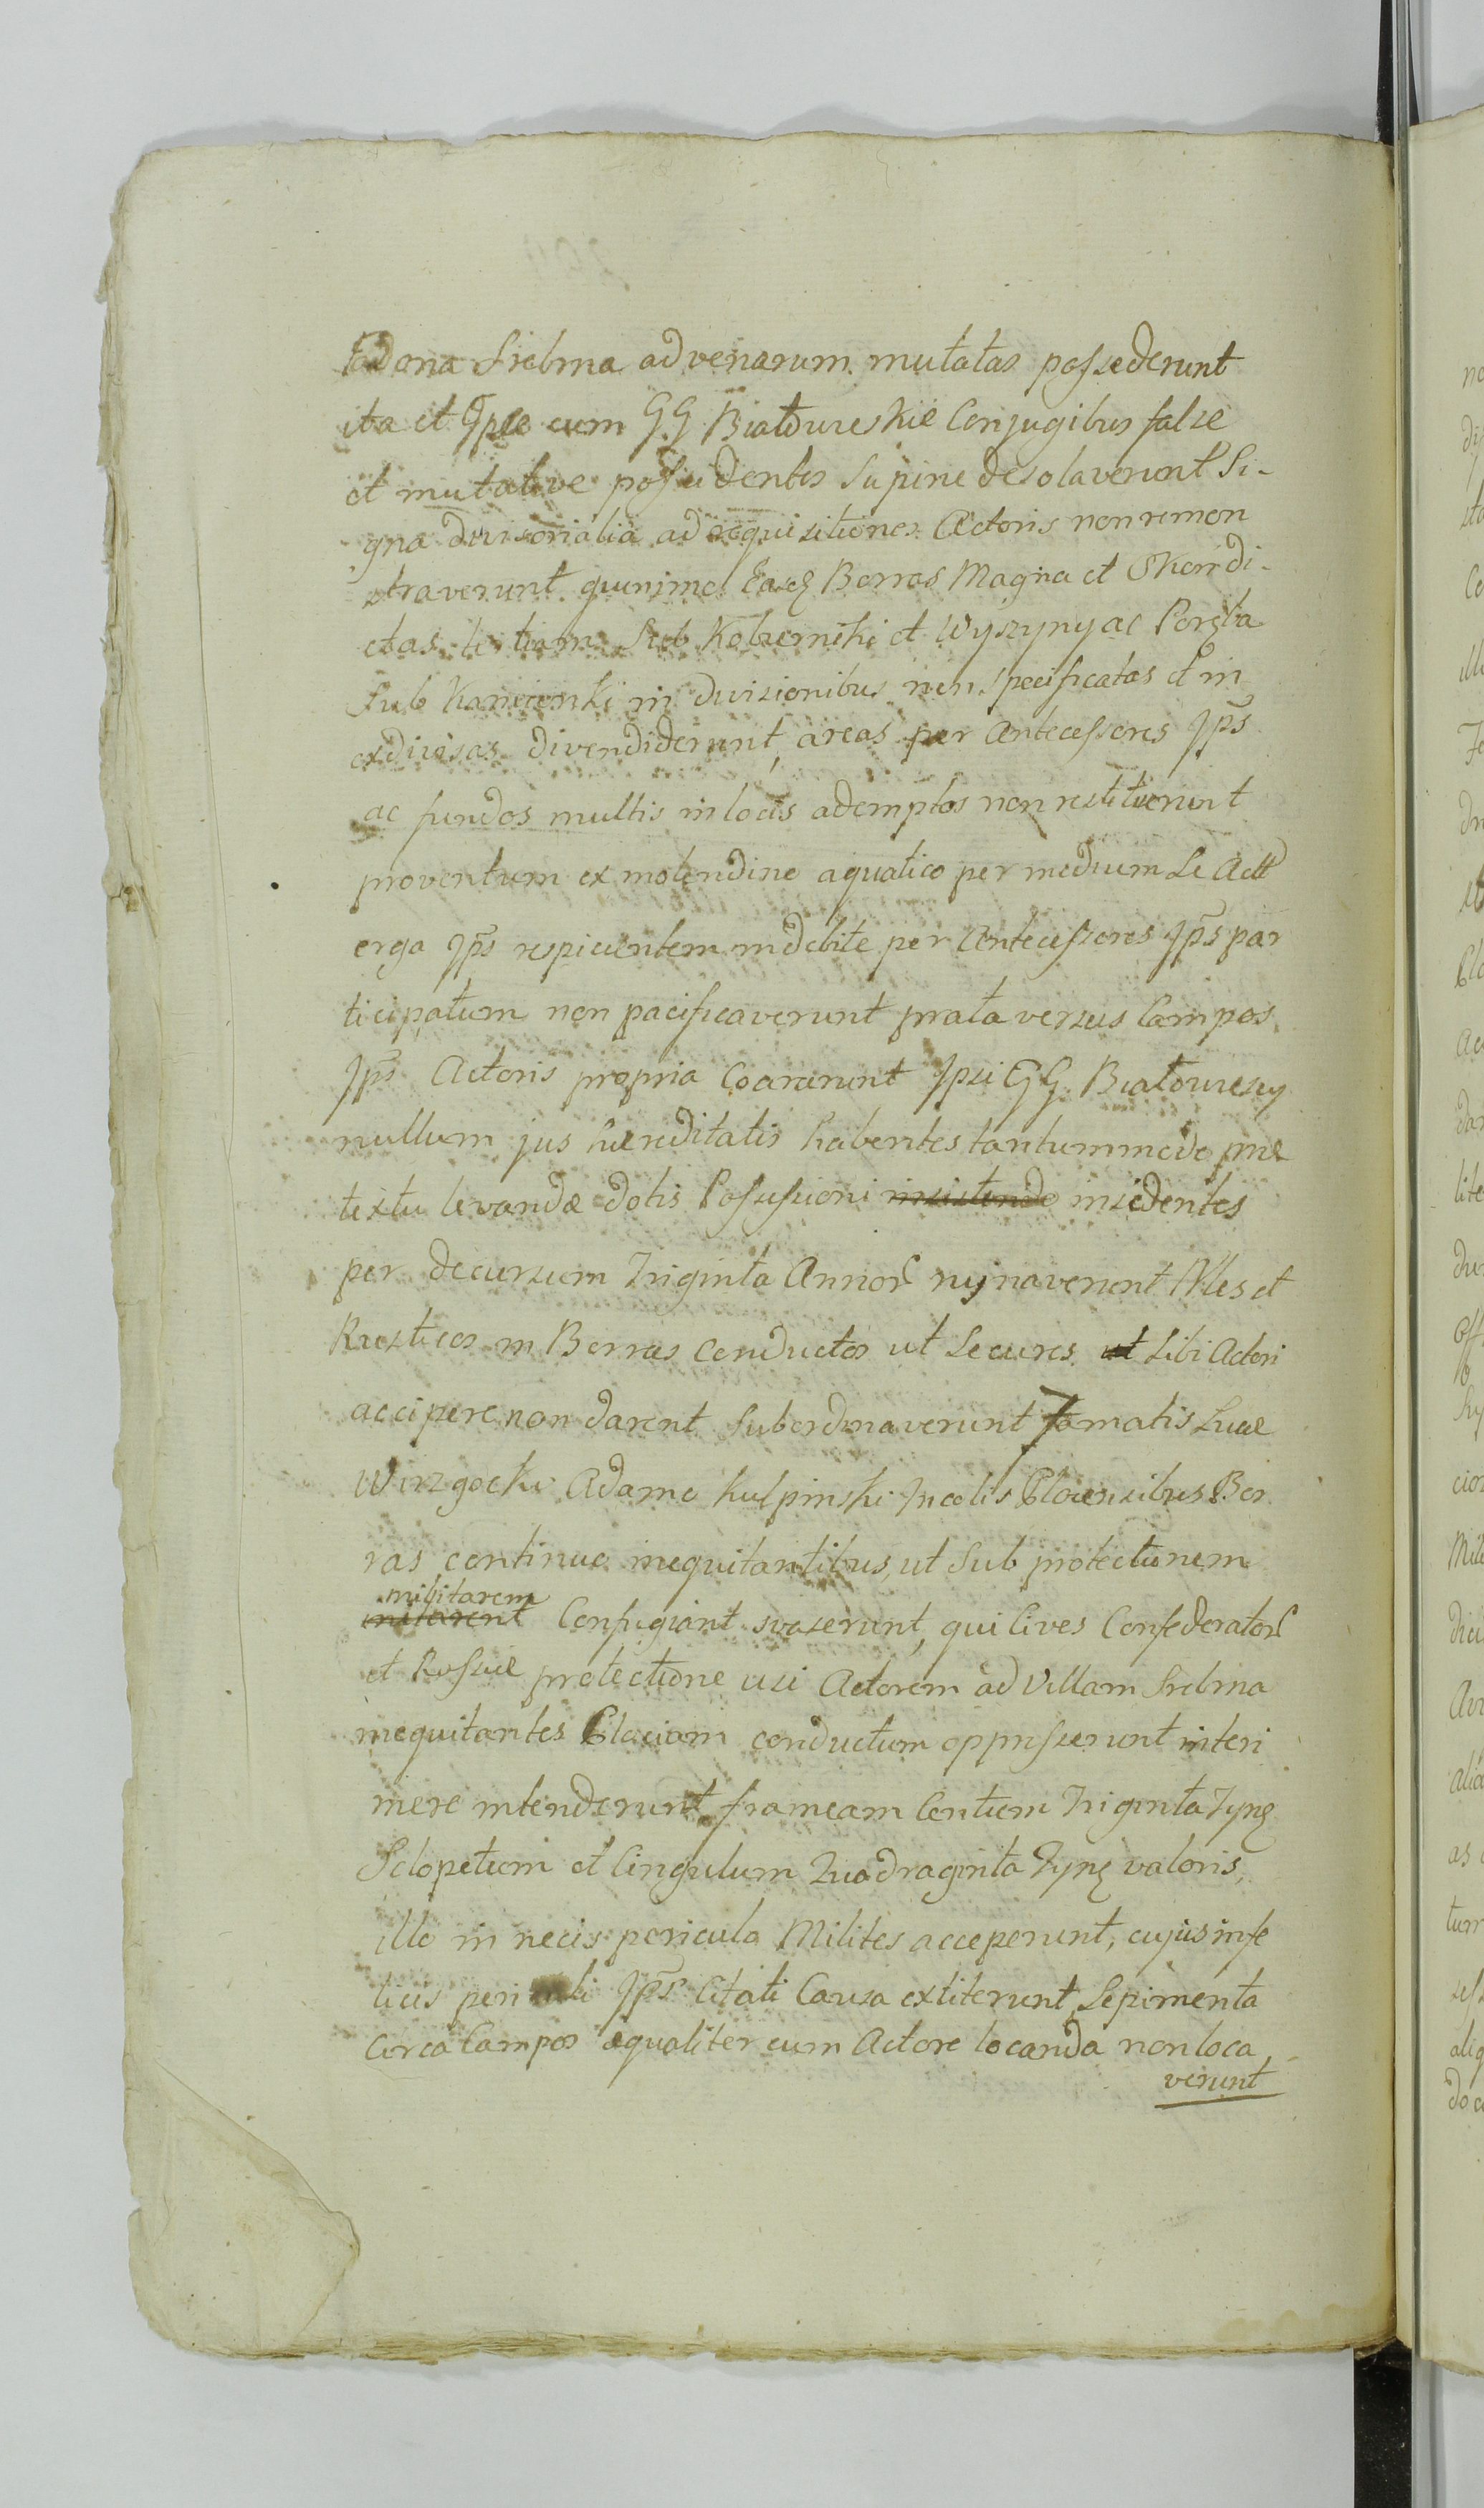 Srebrna advenarum mutatas possederunt
ita et Ipse cum GG Białowieskie Conjugibus false
et mutative possidentes supine desolaverunt Si-
gna divisorialia ad requisitiones Actoris non remon
straverunt quinimo Easq Borras Magna et Skorri di-
ctas tertiam sub Kobierniki et Wyszyny ac Poręba
sub Kamionki in divisionibus non specificatas et in
exdivisas divendiderunt, areas per Antecessores Jps
ac fundos multis in locis ademptos non restituerunt
proventum ex molendino aquatico per medium Se Act
erga Jps respicientem indebite per Antecessores Jps par
ticipatum non pacificaverunt prata versus Campos
Jps Actoris propria Coararunt Ipsi GG. Białowiescy
nullum jus hæreditatis habentes tantummodo præ
textu levandæ dotis Possessioni insistendo insidentes
per decursum Triginta Annor ruinaverunt Mles et
Rusticos in Borras conductos ut Secures ut Sibi Actori
accipere non darent subordinaverunt Famatis Lucæ
Wizgocki Adamo Kulpinski Incolis Plocensibus Bor
ras continuo inequitantibus, ut sub protectionem
militarem
Confugiant svaserunt, qui Cives Confederator
et Rossiæ protectione usi Actorem ad Villam Srebrna
inequitantes Plociam conductum oppresserunt interi
mere intenderunt frameam Centum Triginta Tynf
Sclopetum et Cingulum Quadraginta Tynf valoris,
illo in necis periculo Milites acceperunt, cujus infe
licis periculi Jps Citati Causa extiterunt, Sepimenta
circa Campos æqualiter cum Actore locanda non loca
verunt